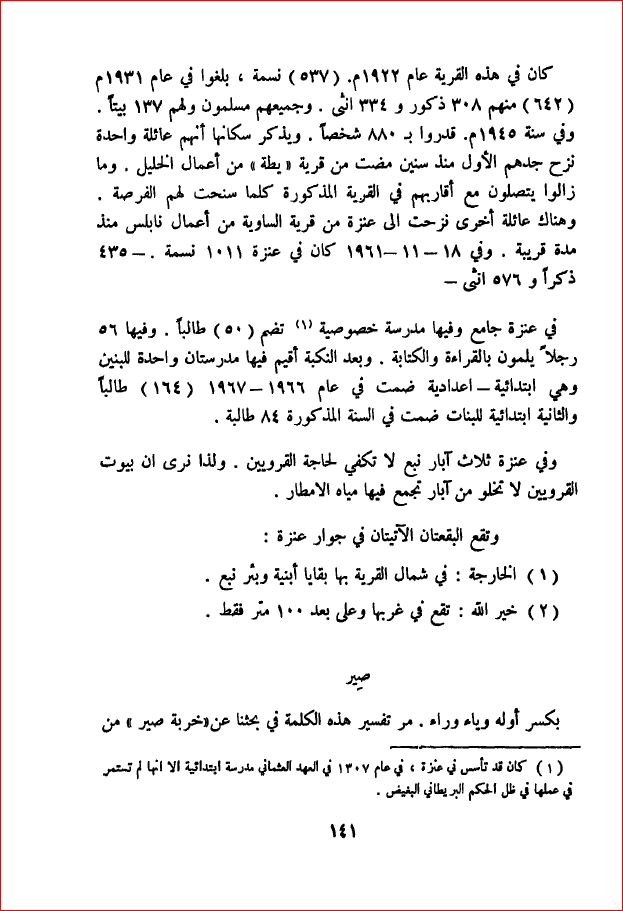 كان في هذه القرية عام ١٩٢٢م. (٥٣٧) نسمة ، بلغوا في عام ١٩٣١م
(٦٤٢) منهم ٣٠٨ ذكور و ٣٣٤ انثى . وجميعهم مسلمون ولهم ١٣٧ بيتاً .
وفي سنة ١٩٤٥م. قدروا بـ ٨٨٠ شخصاً . ويذكر سكانها أنهم عائلة واحدة
نزح جدهم الأول منذ سنين مضت من قرية « يطة » من أعمال الخليل . وما
زالوا يتصلون مع أقاربهم في القرية المذكورة كلما سنحت لهم الفرصة .
وهناك عائلة أخرى نزحت الى عنزة من قرية الساوية من أعمال نابلس منذ
مدة قريبة . وفي ١٨ – ١١ –١٩٦١ كان في عنزة ١٠١١ نسمة . – ٤٣٥
ذكراً و ٥٧٦ انثى –
في عنزة جامع وفيها مدرسة خصوصية (١) تضم (٥٠) طالباً . وفيها ٥٦
رجلاً يلمون بالقراءة والكتابة . وبعد النكبة أقيم فيها مدرستان واحدة للبنين
وهي ابتدائية – اعدادية ضمت في عام ١٩٦٦ –١٩٦٧ (١٦٤) طالباً
والثانية ابتدائية للبنات ضمت في السنة المذكورة ٨٤ طالبة .
وفي عنزة ثلاث آبار نبع لا تكفي لحاجة القرويين . ولذا نرى ان بيوت
القرويين لا تخلو من آبار تجمع فيها مياه الامطار .
وتقع البقعتان الآتيتان في جوار عنزة :
(١) الخارجة : في شمال القرية بها بقايا أبنية وبئر نبع .
(٢) خير الله : تقع في غربها وعلى بعد ١٠٠ متر فقط .
صِير
بكسر أوله وياء وراء . مر تفسير هذه الكلمة في بحثنا عن «خربة صير » من
(١) كان قد تأسس في عنزة ، في عام ١٣٠٧ في العهد العثماني مدرسة ابتدائية الا انها لم تستمر
في عملها في ظل الحكم البريطاني البغيض .
١٤١